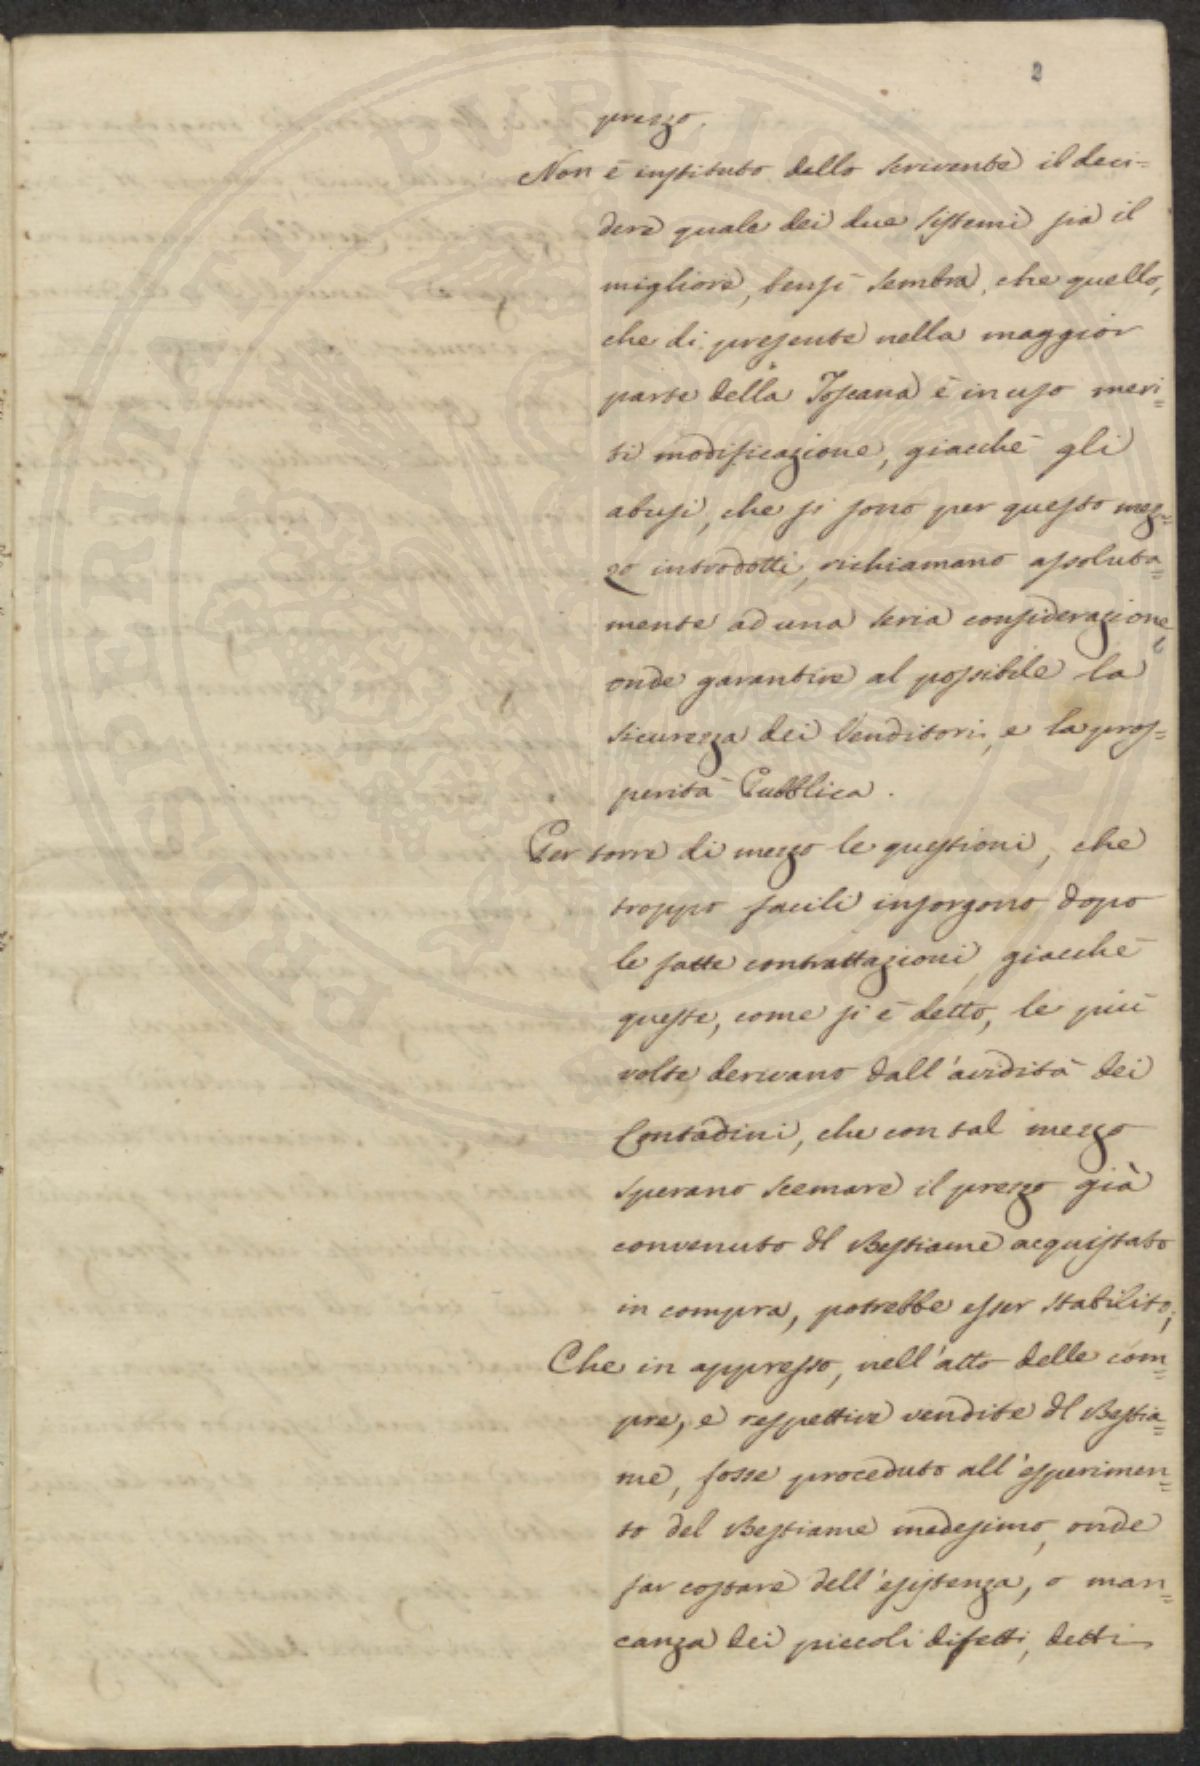 2
prezzo.
Non è instituto dello scrivente il deci=
dere quale dei due sistemi sia il
migliore, bensì sembra, che quello,
che di presente nella maggior
parte della Toscana è in uso meri=
ti modificazione, giacchè gli
abusi, che si sono per questo mez=
zo introdotti, richiamano assoluta=
mente ad una seria considerazione,
onde garantire al possibile la
sicurezza dei Venditori, e la pros=
perità Pubblica.
Per torre di mezzo le questioni, che
troppo facili insorgono dopo
le fatte contrattazioni, giacchè
queste, come si è detto, le più
volte derivano dall'avidità dei
Contadini, che con tal mezzo
sperano scemare il prezzo già
convenuto dl Bestiame acquistato
in compra, potrebbe esser stabilito;
Che in appresso, nell'atto delle com=
pre, e respettive vendite dl Bestia=
me, fosse proceduto all'esperimen=
to del Bestiame medesimo, onde
far costare dell'esistenza, o man=
canza dei piccoli difetti, detti
PROSPERITATI PUBLICAE